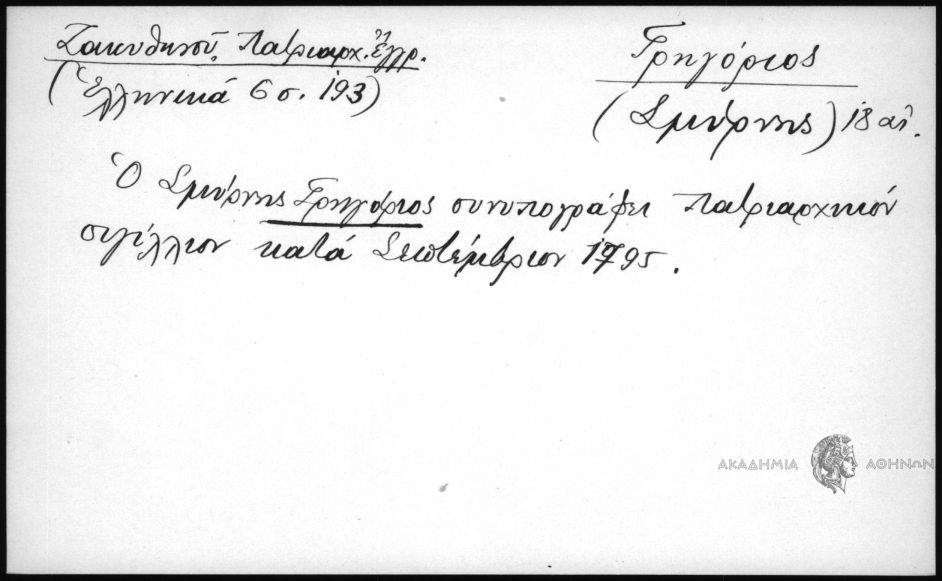 Ζακυθηνοῦ, Πατριαρχ. Ἔγγρ.
(Ἑλληνικά 6 σ. 193)
Γρηγόριος
(Σμύρνης) 18 αἰ.
Ὁ Σμύρνης Γρηγόριος συνυπογράφει Πατριαρχικόν
σιγίλλιον κατά Σεπτέμβριον 1795.
ΑΚΑΔΗΜΙΑ ΑΘΗΝΩΝ